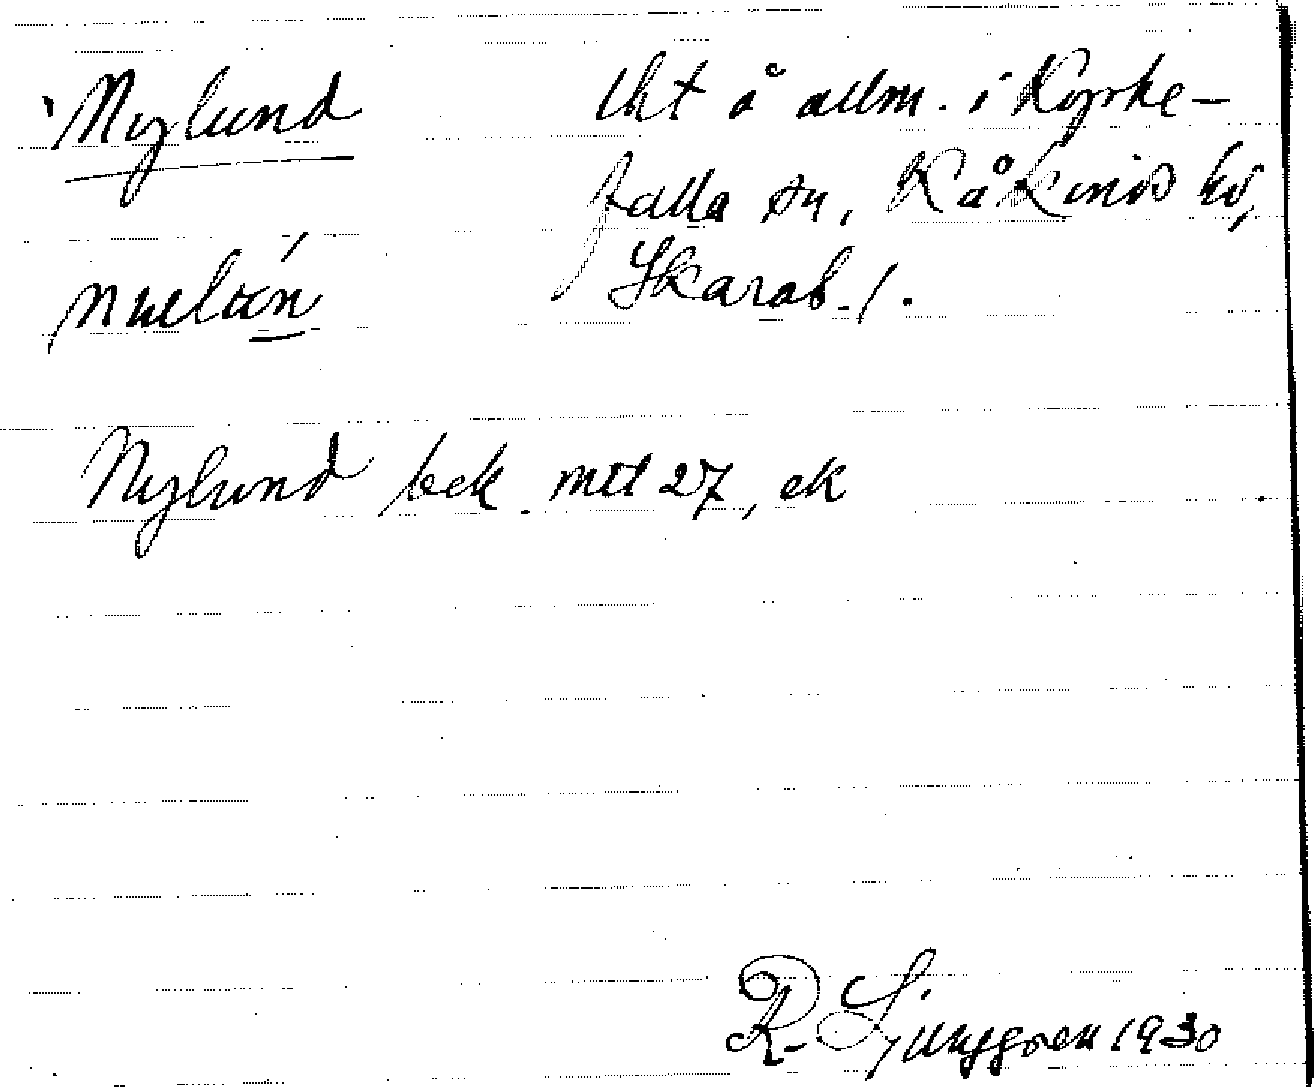 Nylund
lht å allm. i Kyrke-
falla sn, Kåkinds hd,
Skarab. l.
Nylund bek. mtl 27, ek
R. Ljunggren 1930